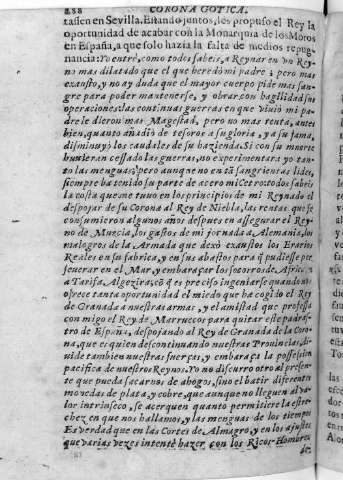 288 CORONA GOTICA.
tassen en Sevilla. Estando juntos, les propuso el Rey la
oportunidad de acabar con la Monarquia de los Moros
en España, a que solo hazia la falta de medios repug-
nancia: Yo entrè, como todos sabeis, a Reynar en vn Rey-
no mas dilatado que el que heredò mi padre; pero mas
exausto, y no ay duda que el mayor cuerpo pide mas san-
gre para poder mantenerse, y obrar con bugilidad sus
operaciones: las continuas guerras en que viuiò mi pa-
dre le dieron mas Magestad, pero no mas renta, antes
bien, quanto añadiò de tesoros a su gloria, y a su fama,
disminuyò los caudales de su hazienda. Si con su muerte
huuieran cessado las guerras, no experimentara yo tan-
to las menguas; pero aunque no en tã sangrientas lides,
siempre ha tenido su parte de acero mi Cetro: todos sabeis
la costa que me tuuo en los principios de mi Reynado el
despojar de su Corona al Rey de Niebla, las rentas que se
consumieron algunos años despues en assegurar el Rey-
no de Murcia, los gastos de mi jornada a Alemania, los
malogros de la Armada que dexò exaustos los Erarios
Reales en su fabrica, y en sus abastos para q̃ pudiesse per-
seuerar en el Mar, y embarazar los socorros de Africa
a Tarifa, Algezira, cõ q̃ es preciso ingeniarse quando nos
ofrece tanta oportunidad el miedo que ha cogido el Rey
de Granada a nuestras armas, y el amistad que professa
con migo el Rey de Marruecos para quitar este padras-
tro de España, despojando al Rey de Granada de la Coro-
na, que es quien descontinuando nuestras Prouincias, di-
uide tambien nuestras fuerças, y embaraça la possession
pacifica de nuestros Reynos. Yo no discurro otro al presen-
te que pueda sacarnos de ahogos, sino el batir diferentes
monedas de plata, y cobre, que aunque no lleguen al va-
lor intrinseco, se acerquen quanto permitiere la estre-
chez en que nos hallamos, y las menguas de los tiempos
Es verdad que en las Cortes de Almagro, y en los ajustes
que varias vezes intentè hazer con los Ricos-Hombres
de